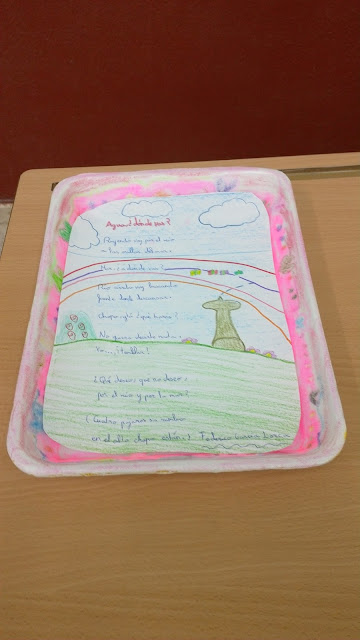 Agua ¿dónde vas?
Riyendo voy por el río
a las orillas del mar.
Mar, ¿a dónde vas?
Río arriba voy buscando
fuente donde descansar.
Chopo, y tú ¿qué harás?
No quiero decirte nada.
Yo..., ¡temblar!
¿Qué deseo, que no deseo,
por el río y por la mar?
(Cuatro pájaros sin rumbo
en el alto chopo están.) Federico García Lorca